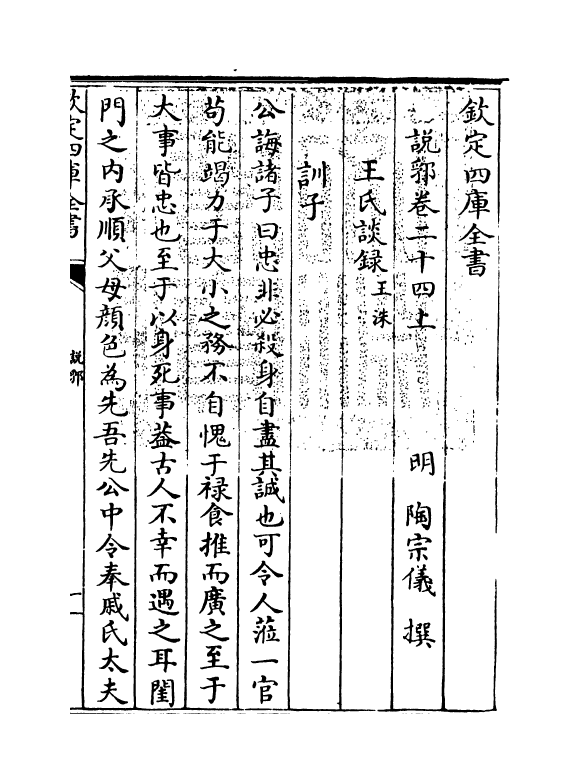 欽定四庫全書
說郛卷二十四上
明 陶宗儀 撰
王氏談録 王洙
訓子
公誨諸子曰忠非必殺身自盡其誠也可令人蒞一官
茍能竭力于大小之務不自愧于禄食推而廣之至于
大事皆忠也至于以身死事葢古人不幸而遇之耳閨
門之内承順父母顔色為先吾先公中令奉戚氏太夫
欽定四庫全書
說郛
一